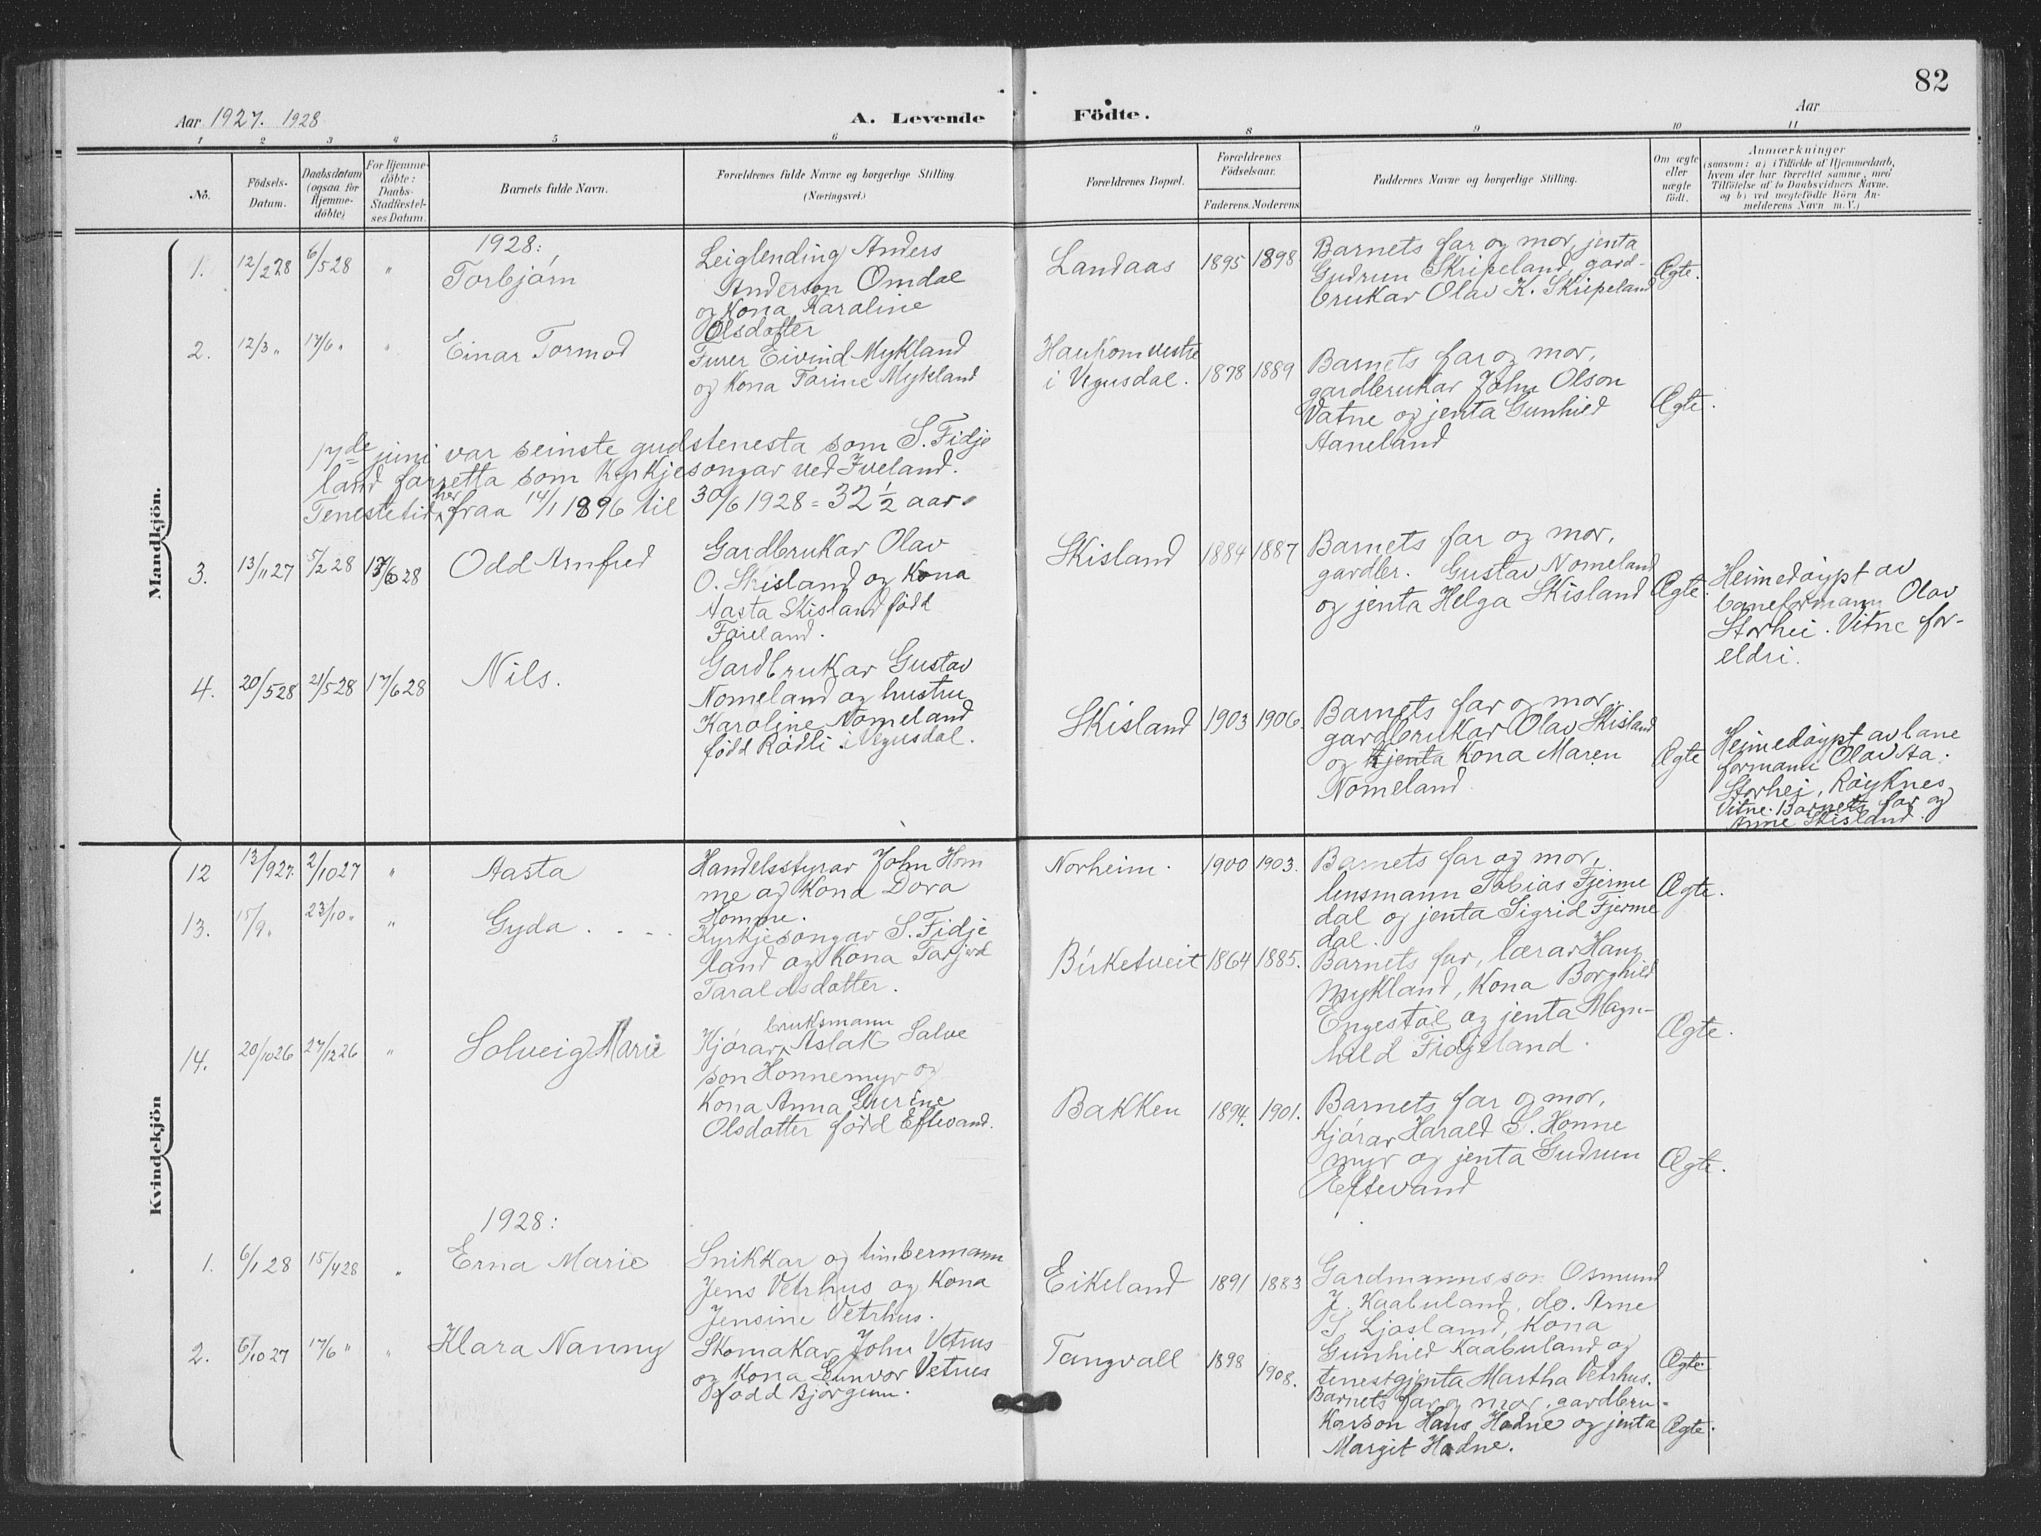 82
Aar 1927. 1928
A. Levende
Födte.
Aar
1 2 3 4 5 6 8 9 10 11
No.
Födsels-
Datum.
Daabsdatum
(ogsaa for
Hjemme-
döbte)
For Hjemme-
döbte:
Daabs-
Stadfæstel-
ses Datum.
Barnets fulde Navn.
Forældrenes fulde Navne og borgerlige Stilling
(Næringsvei.)
Forældrenes Bopæl.
Forældrenes
Födselsaar.
Faderens. Moderens
Faddernes Navne og borgerlige Stilling.
Om ægte
eller
uægte
födt.
Anmærkninger
(saasom: a) i Tilfælde af Hjemmedaab,
hvem der har forrettet samme, med
Tilföielse af to Daabsvidners Navne.
og b) ved uægtefödte Börn An-
melderens Navn m. V.)
Mandkjön.
1928:
1. 12/2 28 6/5 28 " Torbjørn
Leiglending Anders
Anderson Omdal
og Kona Karoline
Olsdatter
Landaas 1895 1898
Barnets far og mor, jenta
Gudrun Skripeland, gard-
brukar Olav K. Skripeland
Ægte.
2. 12/3 " 17/6 " " Einar Tormod
Furer Eivind Mykland
og Kona Tarine Mykland
Haukom vestre
i Vegusdal. 1878 1889
Barnets far og mor,
gardbrukar John Olson
Vatne og jenta Gunhild
Aaneland
Ægte.
17de juni var seinste gudstenesta som S. Fidje
land forretta som Kyrkjesongar ved Iveland.
Tenestetid her fraa 14/1 1896 til 30/6 1928 = 32 1/2 aar.
3. 13/11 27 5/2 28 17/6 28 Odd Arnfred
Gardbrukar Olav
O. Skisland og Kona
Aasta Skisland född
Fareland.
Skisland 1884 1887
Barnets far og mor,
gardbr. Gustav Nomeland
og jenta Helga Skisland
Ægte.
Heimedøypt av
baneformann Olav
Storhei. Vitne for-
eldri.
4. 20/5 28 21/5 28 17/6 28 Nils.
Gardbrukar Gustav
Nomeland og hustru
Karoline Nomeland
født Rødli i Vegusdal.
Skisland 1903 1906.
Barnets far og mor,
gardbrukar Olav Skisland
og jenta Kona Maren
Nomeland.
Ægte
Heimedøypt av bane
formann Olav Aa.
Storhei, Røyknes
Vitne: Barnets far og
Anne Skisland.
Kvindekjön
12 13/9 27. 2/10 27 " Aasta
Handelsstyrar John Hom
me og Kona Dora
Homme.
Norheim. 1900 1903.
Barnets far og mor,
lensmann Tobias Fjerme
dal og jenta Sigrid Fjerme
dal.
Ægte.
13. 15/9 " 23/10 " " Gyda
Kyrkjesongar S. Fidje
land og Kona Tarjerd
Taraldsdatter.
Birketveit 1864 1885.
Barnets far, lærar Hans
Mykland, Kona Borghild
Engestøl og jenta Magn-
hild Fidjeland.
Ægte.
14. 20/10 26 27/12 26 " Solveig Marie
bruksmann
Kjørar Aslak Salve
son Honnemyr og
Kona Anna Gurine
Olsdatter född Eftevand.
Bakken 1894. 1901.
Barnets far og mor,
Kjørar Harald S. Honne
myr og jenta Gudrun
Eftevand
Ægte.
1928:
1. 6/1 28 15/4 28 " Erna Marie
Snikkar og timbermann
Jens Vetrhus og Kona
Jensine Vetrhus.
Eikeland 1891 1883
Gardmannsson Osmund
J. Kaabuland, do. Arne
S. Ljosland, Kona
Gunhild Kaabuland og
tenestgjenta Martha Vetrhus.
Ægte
2. 6/10 27 17/6 " " Klara Nanny
Skomakar John Vetrus
og Kona Gunvor Vetrus
fødd Bjørgum.
Tangvall 1898 1908.
Barnets far og mor, gardbru-
karson Hans Hodne og jenta
Margit Hodne.
Ægte.